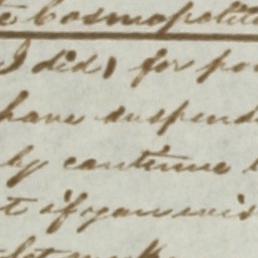 Cosmopolit
I did, for po
have suspend
by continue
t if you wis